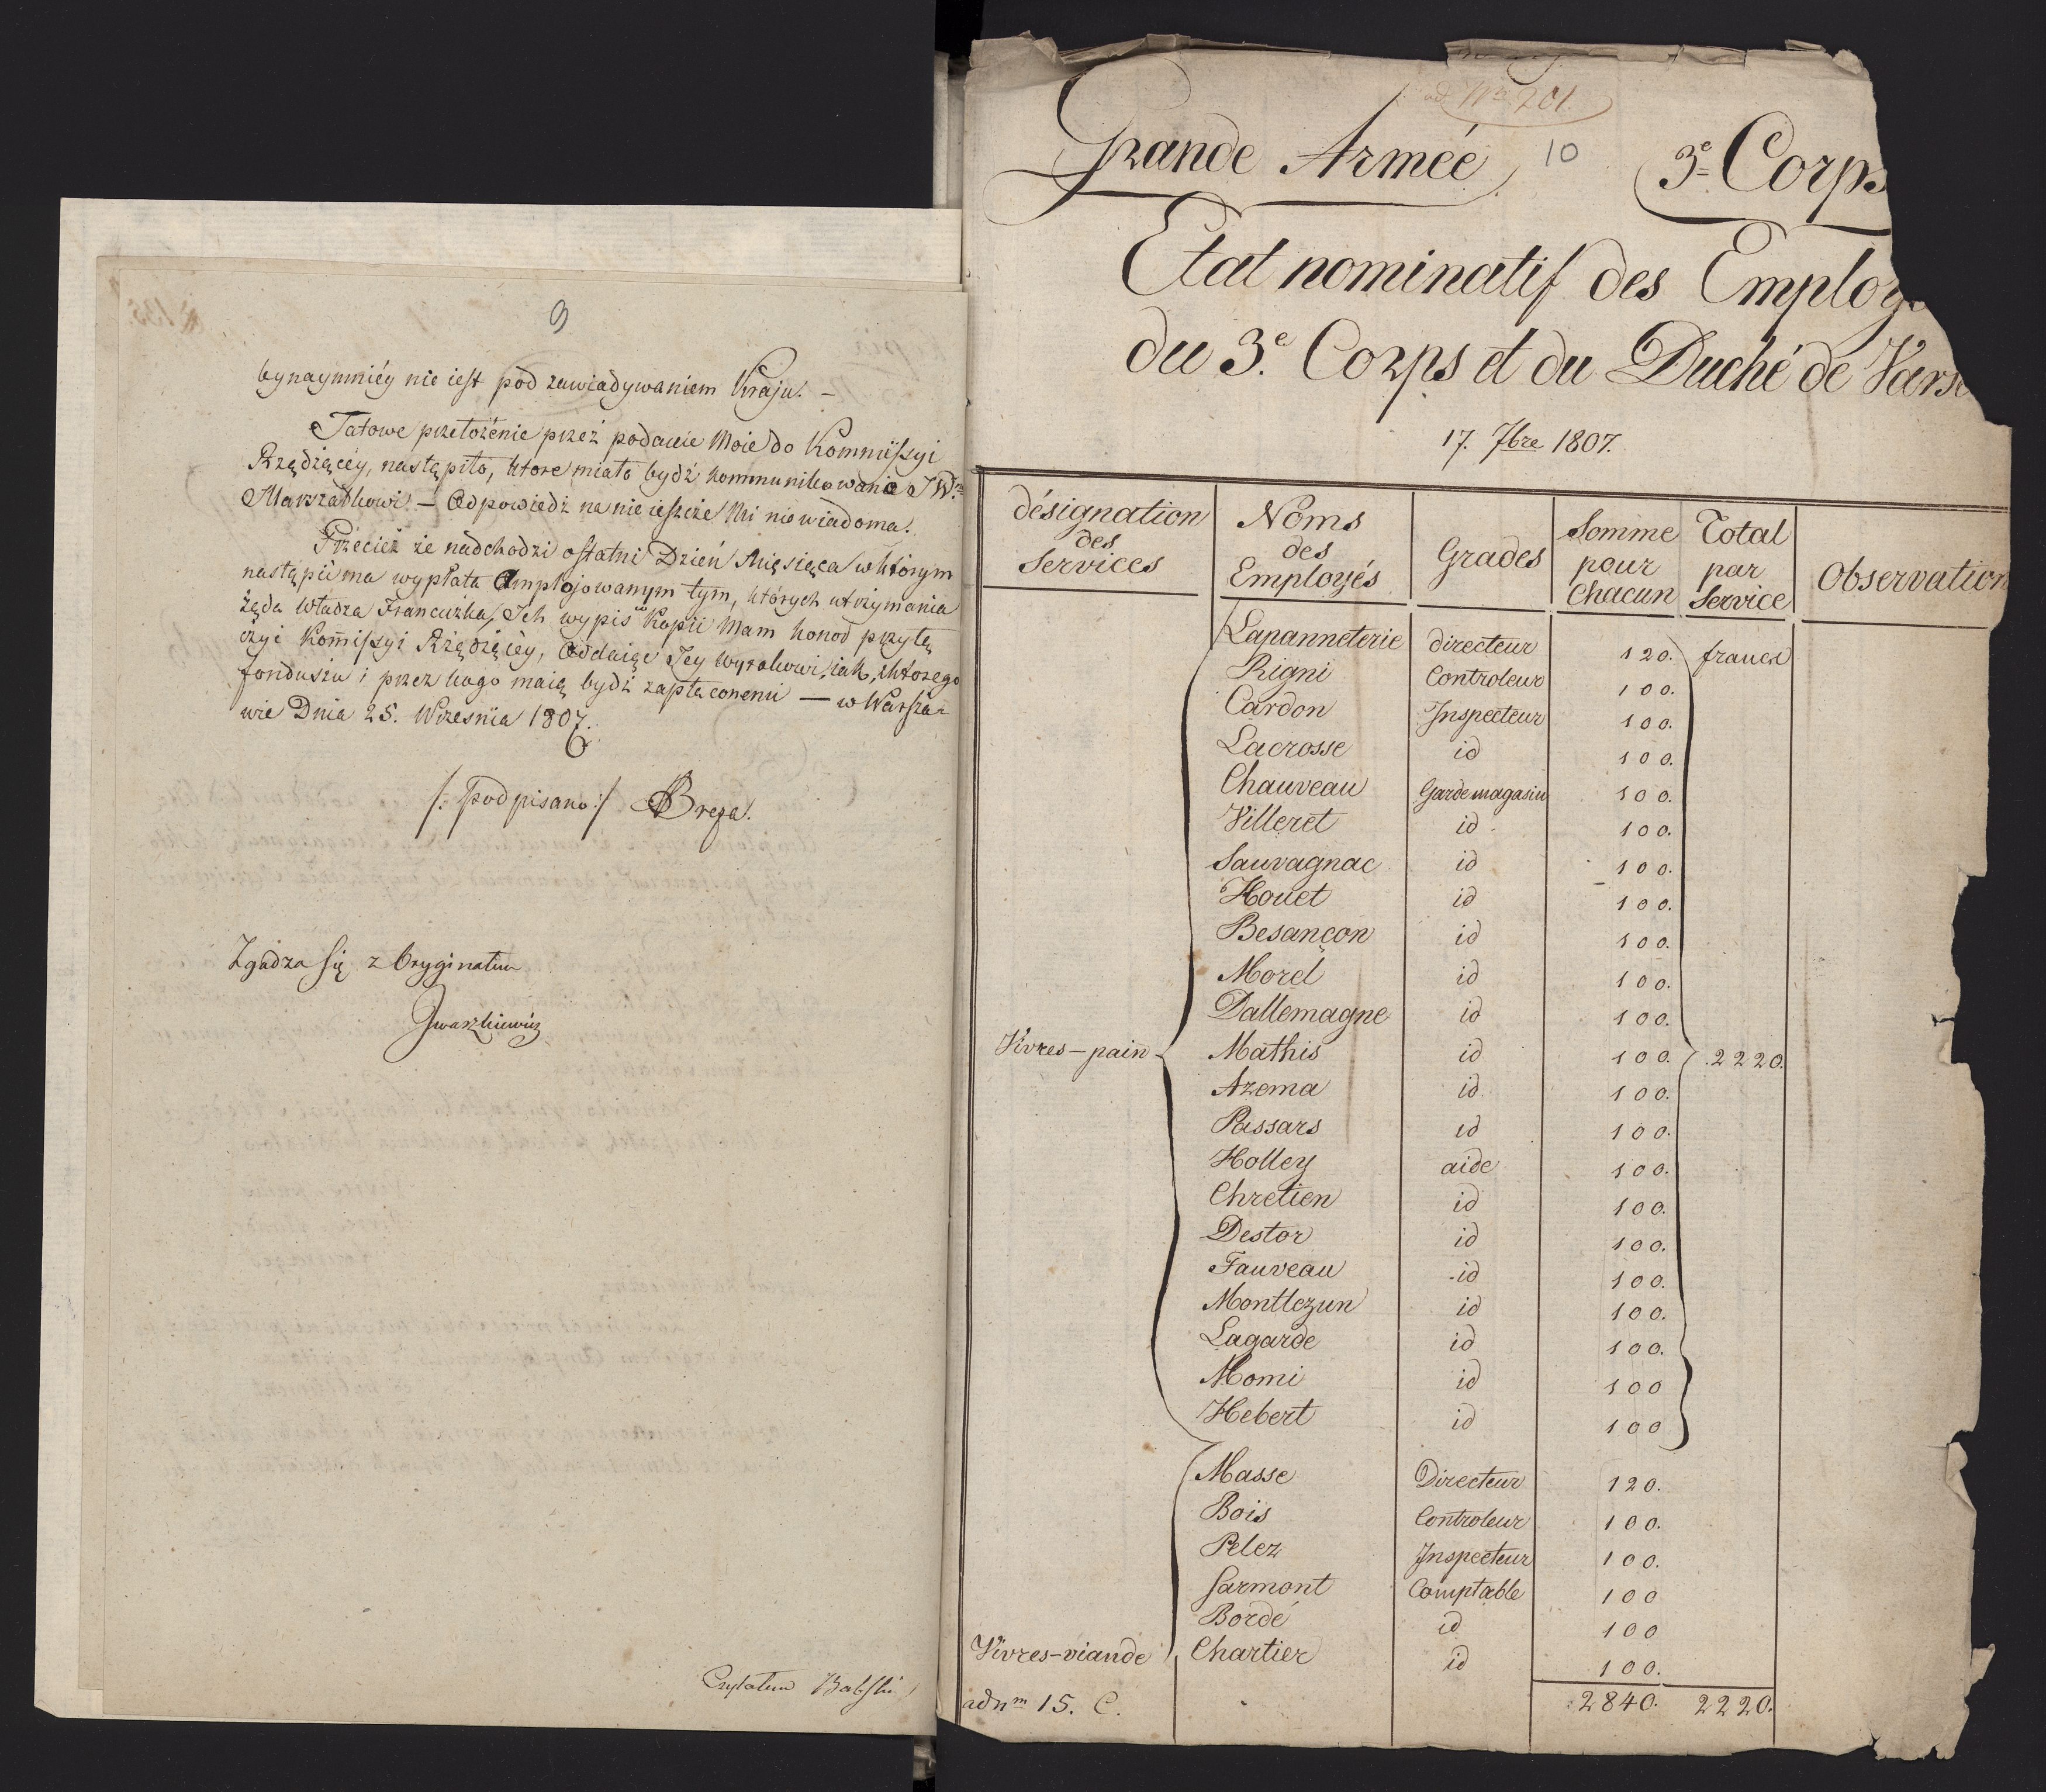 9
bynaymniéy nie iest pod zawiadywaniem Kraju. —
Takowe przełożénie przéz podanie Moie do Kommissyi
Rządzącéy, nastąpiło, które miało bydź kommunikowane JW.
Marszałkowi — Odpowiedź na nie ieszcze Mi nie wiadoma.
Przecież że nadchodzi ostatni Dzień Miesiąca w którym
nastąpić ma wypłata Amplojowanym tym, których utrzymania
żąda Władza Francuzka, Ich wypis Kopii Mam honor przyłą
czyć Komissyi Rządzącéy, Oddaiąc Jey Wyrokowi, iak, z którego
funduszu i przez kogo maią bydź zapłaconemi — w Warsza=
wie Dnia 25. Wrzesnia 1807.
/: Podpisano :/ Breza.
Zgadza się z Oryginałem
Czytałem Babski
ad Nr 201.
10
Grande Armée 3e Corps
Etat nominatif des Employ
du 3.e Corps et du Duché de Vars
17. 7bre 1807.
désignation des Services | Noms des Employés | Grades | Somme pour Chacun | Total par Service | Observation
Lapanneterie directeur 120. francs
Rigni Controleur 100.
Cardon Inspecteur 100.
Lacrosse id 100.
Chauveau Garde magasin 100.
Villeret id 100.
Sauvagnac id 100.
Houet id 100.
Besançon id 100.
Morel id 100.
Dallemagne id 100.
Vivres-pain Mathis id 100. 2220.
Azema id 100.
Passars id 100.
Holley aide 100.
Chretien id 100.
Destor id 100.
Fauveau id 100.
Montlezun id 100.
Lagarde id 100.
Momi id 100
Hebert id 100
Masse Directeur 120.
Bois Controleur 100.
Pelez Inspecteur 100.
Sarmont Comptable 100
Bordé id 100
Vivres-viande Chartier id 100.
adnm 15. C. 2840. 2220.